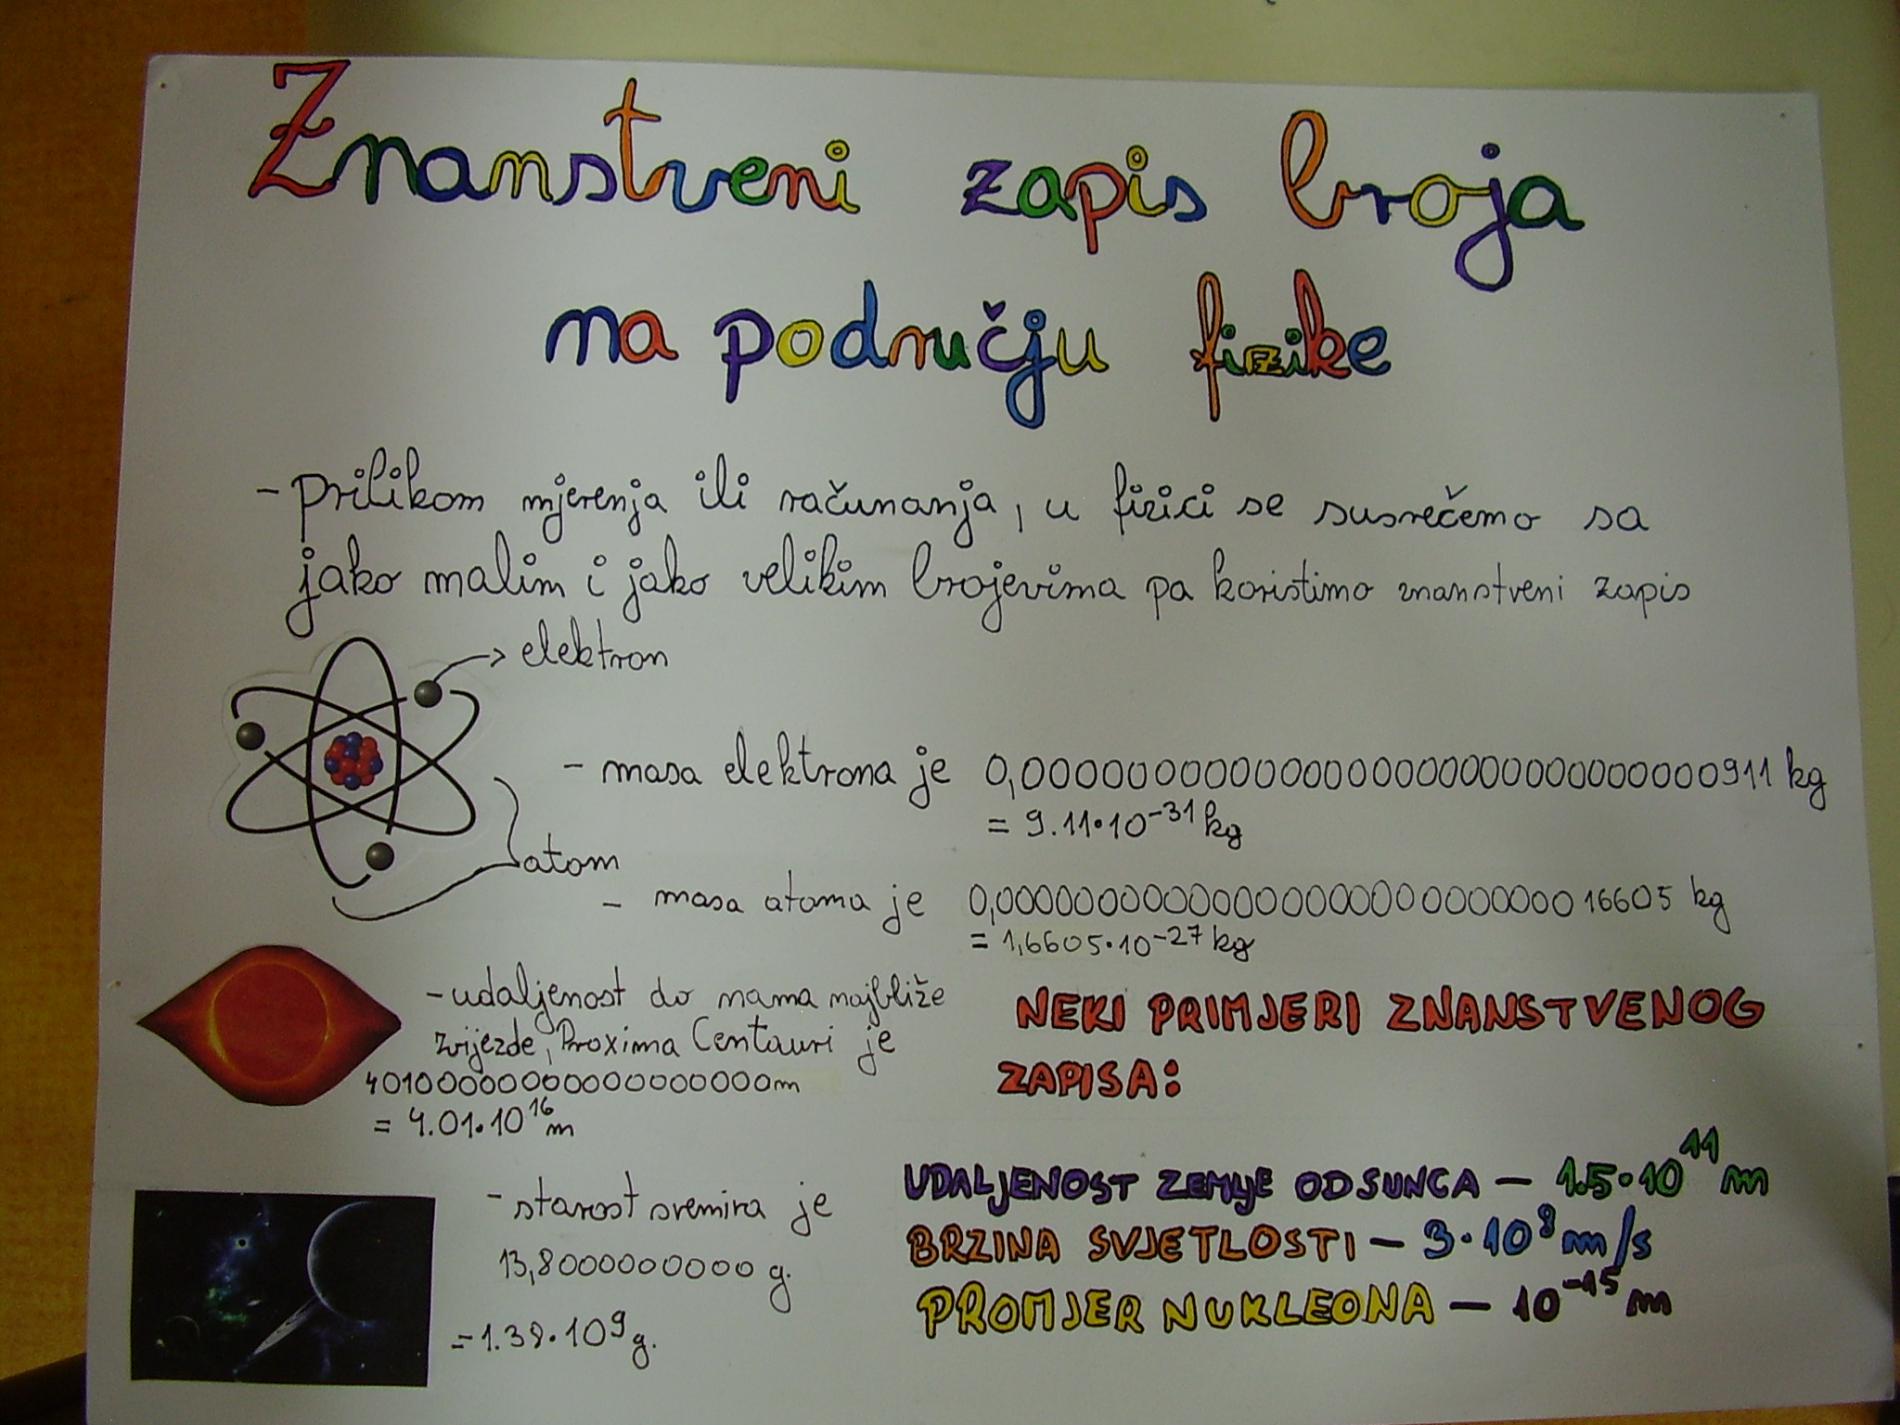 Znanstveni zapis broja
na području fizike
- prilikom mjerenja ili računanja, u fizici se susrećemo sa
jako malim i jako velikim brojevima pa koristimo znanstveni zapis
elektron
- masa elektrona je 0,000000000000000000000000000000911 kg
= 9.11·10⁻³¹ kg
atom
- masa atoma je 0,00000000000000000000000000016605 kg
= 1,6605·10⁻²⁷ kg
- udaljenost do nama najbliže
zvijezde, Proxima Centauri je
40100000000000000000m
= 4.01·10¹⁶ m
NEKI PRIMJERI ZNANSTVENOG
ZAPISA:
- starost svemira je
13,8000000000 g.
= 1.38·10⁹ g.
UDALJENOST ZEMLJE OD SUNCA — 1.5·10¹¹ m
BRZINA SVJETLOSTI — 3·10⁸ m/s
PROMJER NUKLEONA — 10⁻¹⁵ m